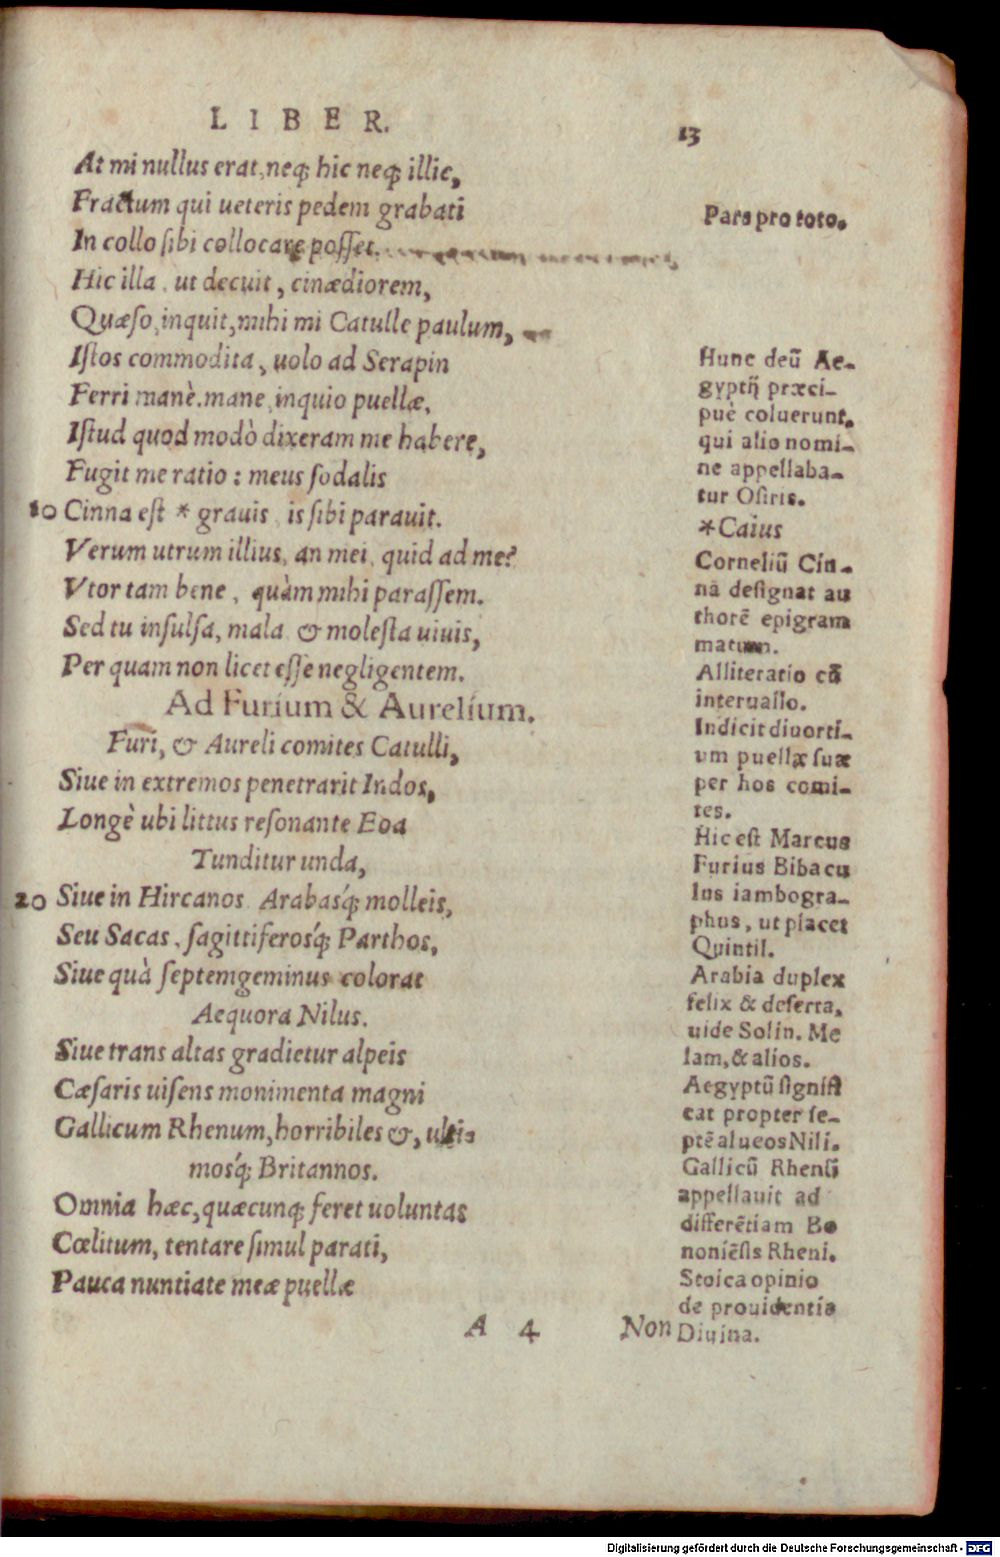 LIBER.
13
At mi nullus erat, neq; hic neq; illic,
Fractum qui ueteris pedem grabati
In collo sibi collocare posset.
Hic illa, ut decuit, cinædiorem,
Quæso, inquit, mihi mi Catulle paulum,
Istos commodita, uolo ad Serapin
Ferri manè. mane, inquio puellæ,
Istud quod modò dixeram me habere,
Fugit me ratio: meus sodalis
10 Cinna est * grauis, is sibi parauit.
Verum utrum illius, an mei, quid ad me?
Vtor tam bene, quàm mihi parassem.
Sed tu insulsa, mala & molesta uiuis,
Per quam non licet esse negligentem.
Ad Furium & Aurelium.
Furi, & Aureli comites Catulli,
Siue in extremos penetrarit Indos,
Longè ubi littus resonante Eoa
Tunditur unda,
20 Siue in Hircanos, Arabasq́; molleis,
Seu Sacas, sagittiferosq́; Parthos,
Siue quà septemgeminus colorat
Aequora Nilus.
Siue trans altas gradietur alpeis
Cæsaris uisens monimenta magni
Gallicum Rhenum, horribiles &, ulti=
mosq́; Britannos.
Omnia hæc, quæcunq; feret uoluntas
Cœlitum, tentare simul parati,
Pauca nuntiate meæ puellæ
A 4
Non
Pars pro toto.
Hunc deū Ae-
gyptij præci-
puè coluerunt,
qui alio nomi-
ne appellaba-
tur Osiris.
*Caius
Corneliū Cin-
nā designat au
thorē epigram
matum.
Alliteratio cū
interuallo.
Indicit diuorti-
um puellæ suæ
per hos comi-
tes.
Hic est Marcus
Furius Bibacu
lus iambogra-
phus, ut placet
Quintil.
Arabia duplex
felix & deserta,
uide Solin. Me
lam, & alios.
Aegyptū signifi
cat propter se-
ptē alueos Nili.
Gallicū Rhenū
appellauit ad
differētiam Bo
noniēsis Rheni.
Stoica opinio
de prouidentia
Diuina.
Digitalisierung gefördert durch die Deutsche Forschungsgemeinschaft - DFG